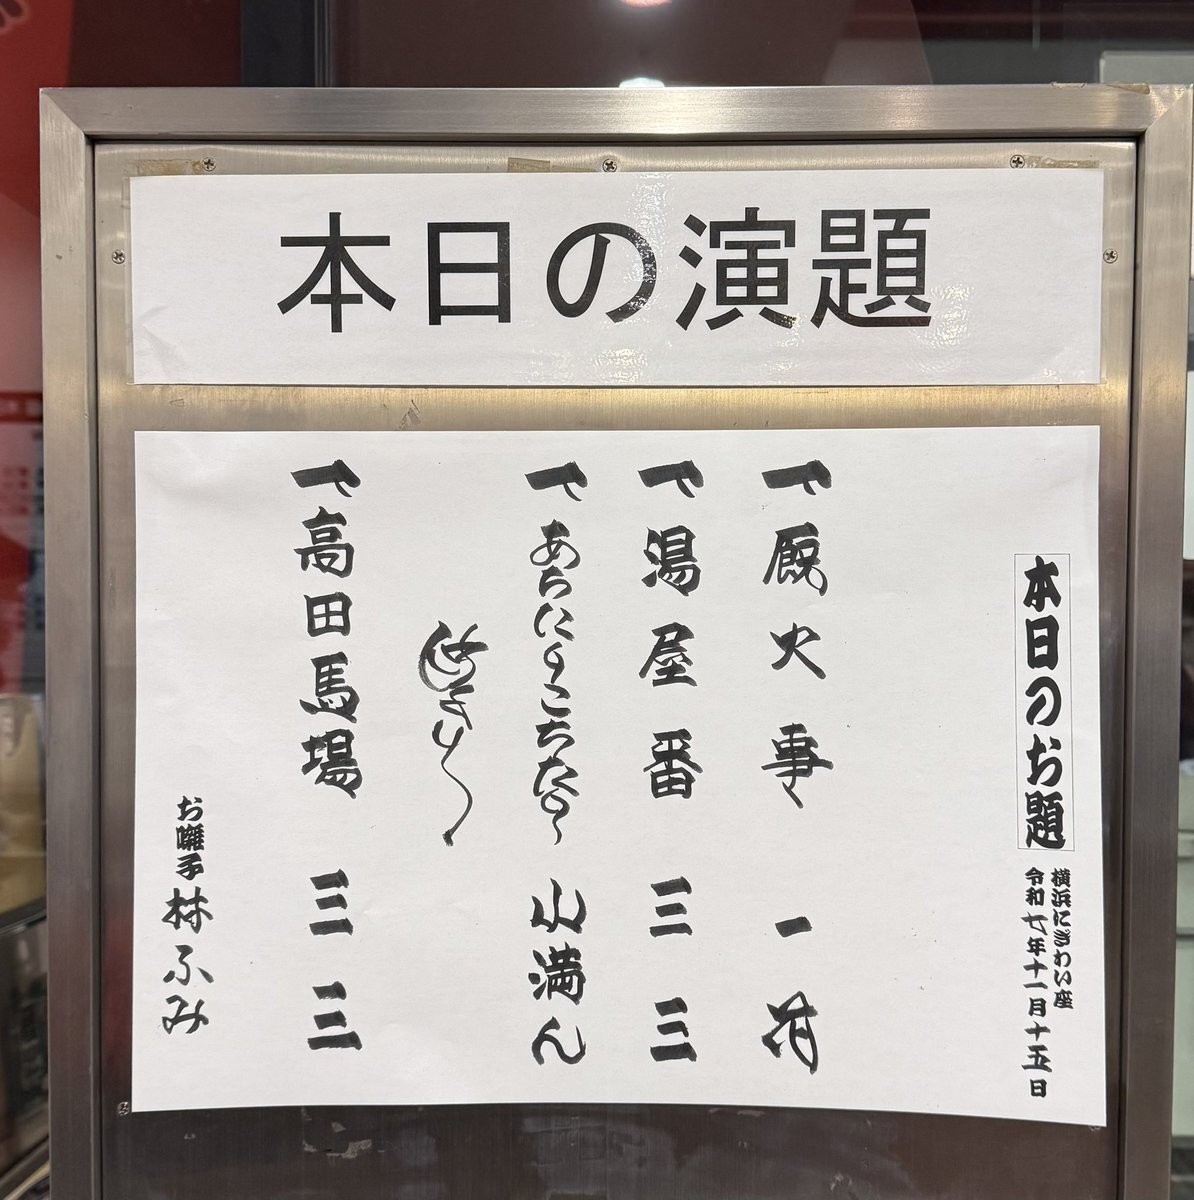 本日の演題
本日のお題
横浜にぎわい座
令和七年十一月十五日
一、厩火事 一花
一、湯屋番 三三
一、あちたりこちたり 小満ん
仲入り
一、高田馬場 三三
お囃子 林ふみ